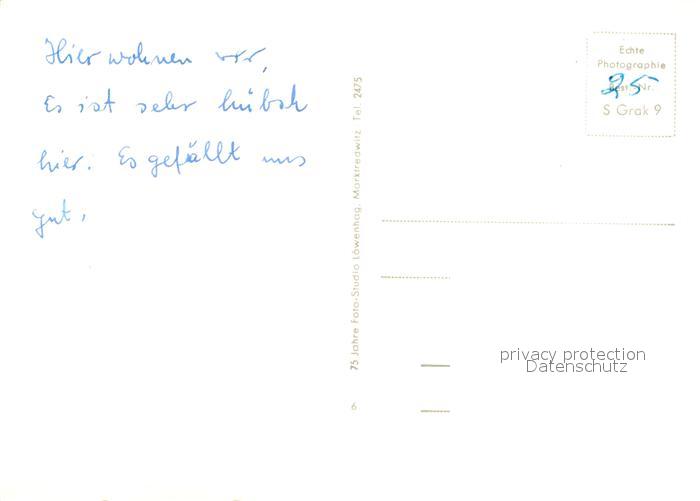 Hier wohnen wir,
Es ist sehr hübsch
hier. Es gefällt uns
gut.
75 Jahre Foto-Studio Löwenhag, Marktredwitz, Tel. 2475
6
Echte
Photographie
Best. Nr.
25
S Grak 9
privacy protection
Datenschutz